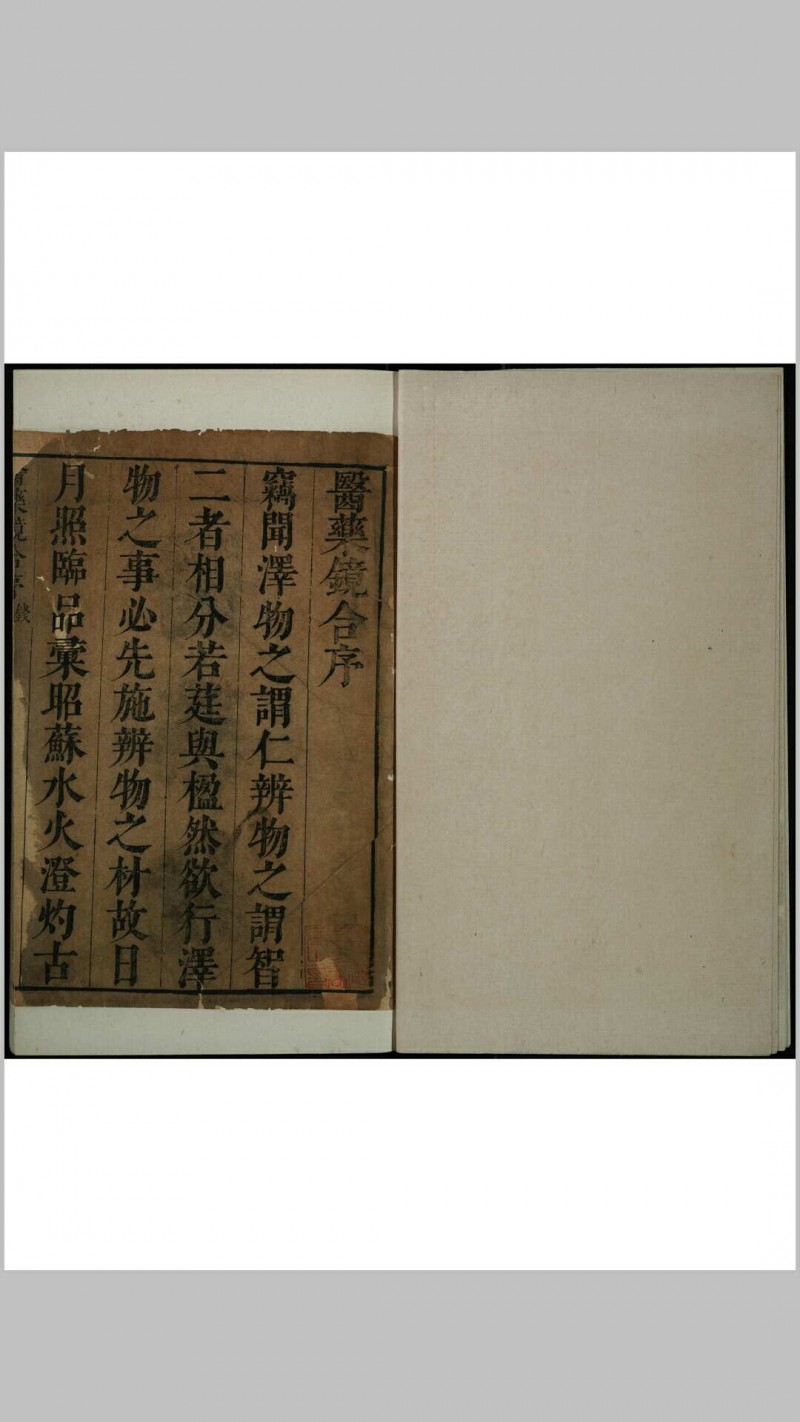 醫藥鏡合序
竊聞澤物之謂仁辨物之謂智
二者相分若莛與楹然欲行澤
物之事必先施辨物之材故日
月照臨品彚昭蘇水火澄灼古
藥鏡合序